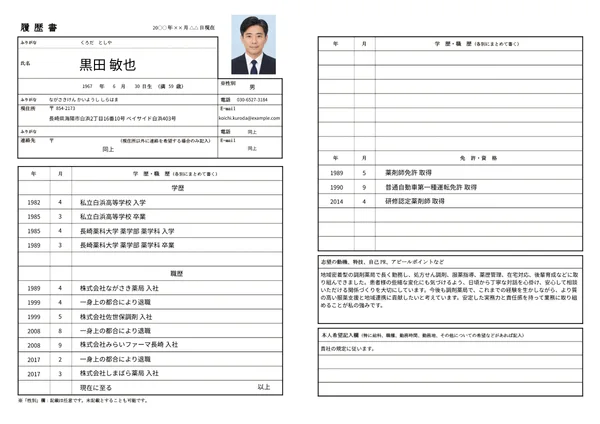 履歴書
20○○年××月△△日現在
ふりがな くろだ としや
氏名 黒田 敏也
1967 年 6 月 30 日生 (満 59 歳)
※性別 男
ふりがな ながさきけん かいようし しらはま
現住所 〒 854-2173
長崎県海陽市白浜2丁目16番10号 ベイサイド白浜403号
電話 030-6527-3184
E-mail
koichi.kuroda@example.com
ふりがな
電話 同上
連絡先 〒 (現住所以外に連絡を希望する場合のみ記入)
同上
E-mail
同上
年 月 学歴・職歴 (各別にまとめて書く)
学歴
1982 4 私立白浜高等学校 入学
1985 3 私立白浜高等学校 卒業
1985 4 長崎薬科大学 薬学部 薬学科 入学
1989 3 長崎薬科大学 薬学部 薬学科 卒業
職歴
1989 4 株式会社ながさき薬局 入社
1999 4 一身上の都合により退職
1999 5 株式会社佐世保調剤 入社
2008 8 一身上の都合により退職
2008 9 株式会社みらいファーマ長崎 入社
2017 2 一身上の都合により退職
2017 3 株式会社しまばら薬局 入社
現在に至る 以上
※「性別」欄:記載は任意です。未記載とすることも可能です。
年 月 学歴・職歴 (各別にまとめて書く)
年 月 免許・資格
1989 5 薬剤師免許 取得
1990 9 普通自動車第一種運転免許 取得
2014 4 研修認定薬剤師 取得
志望の動機、特技、自己PR、アピールポイントなど
地域密着型の調剤薬局で長く勤務し、処方せん調剤、服薬指導、薬歴管理、在宅対応、後輩育成などに取
り組んできました。患者様の些細な変化にも気づけるよう、日頃から丁寧な対話を心掛け、安心して相談
いただける関係づくりを大切にしています。今後も調剤薬局で、これまでの経験を生かしながら、より質
の高い服薬支援と地域連携に貢献したいと考えています。安定した実務力と責任感を持って業務に取り組
めることが私の強みです。
本人希望記入欄 (特に給料、職種、勤務時間、勤務地、その他についての希望などがあれば記入)
貴社の規定に従います。